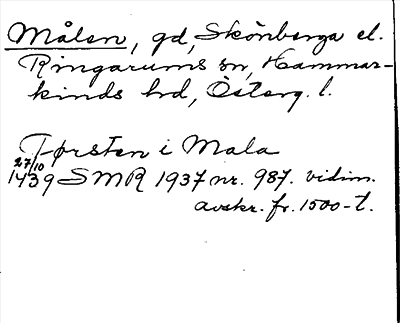 Målen, gd, Skönberga el.
Ringarums sn, Hammar-
kinds hd, Österg. l.
Tørsten i Mala
27/10
1439 SMR 1937 nr. 987. vidim.
avskr. fr. 1500-t.